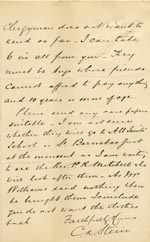 Clergyman does not want to
send so far - I can take
6 in all from you - They
must be boys whose friends
cannot afford to pay anything
and 10 years or more of age.
Please send any as papers
suitable - I am not sure
whether they will go to All Saints
School or St. Barnabas just
at the moment as I am waiting
to see the Revd. R. Mitchell & he
will look after them - As Mr
Williams said nothing when
he brought them I conclude
you do not want the clothes
back
Faithfully Yours